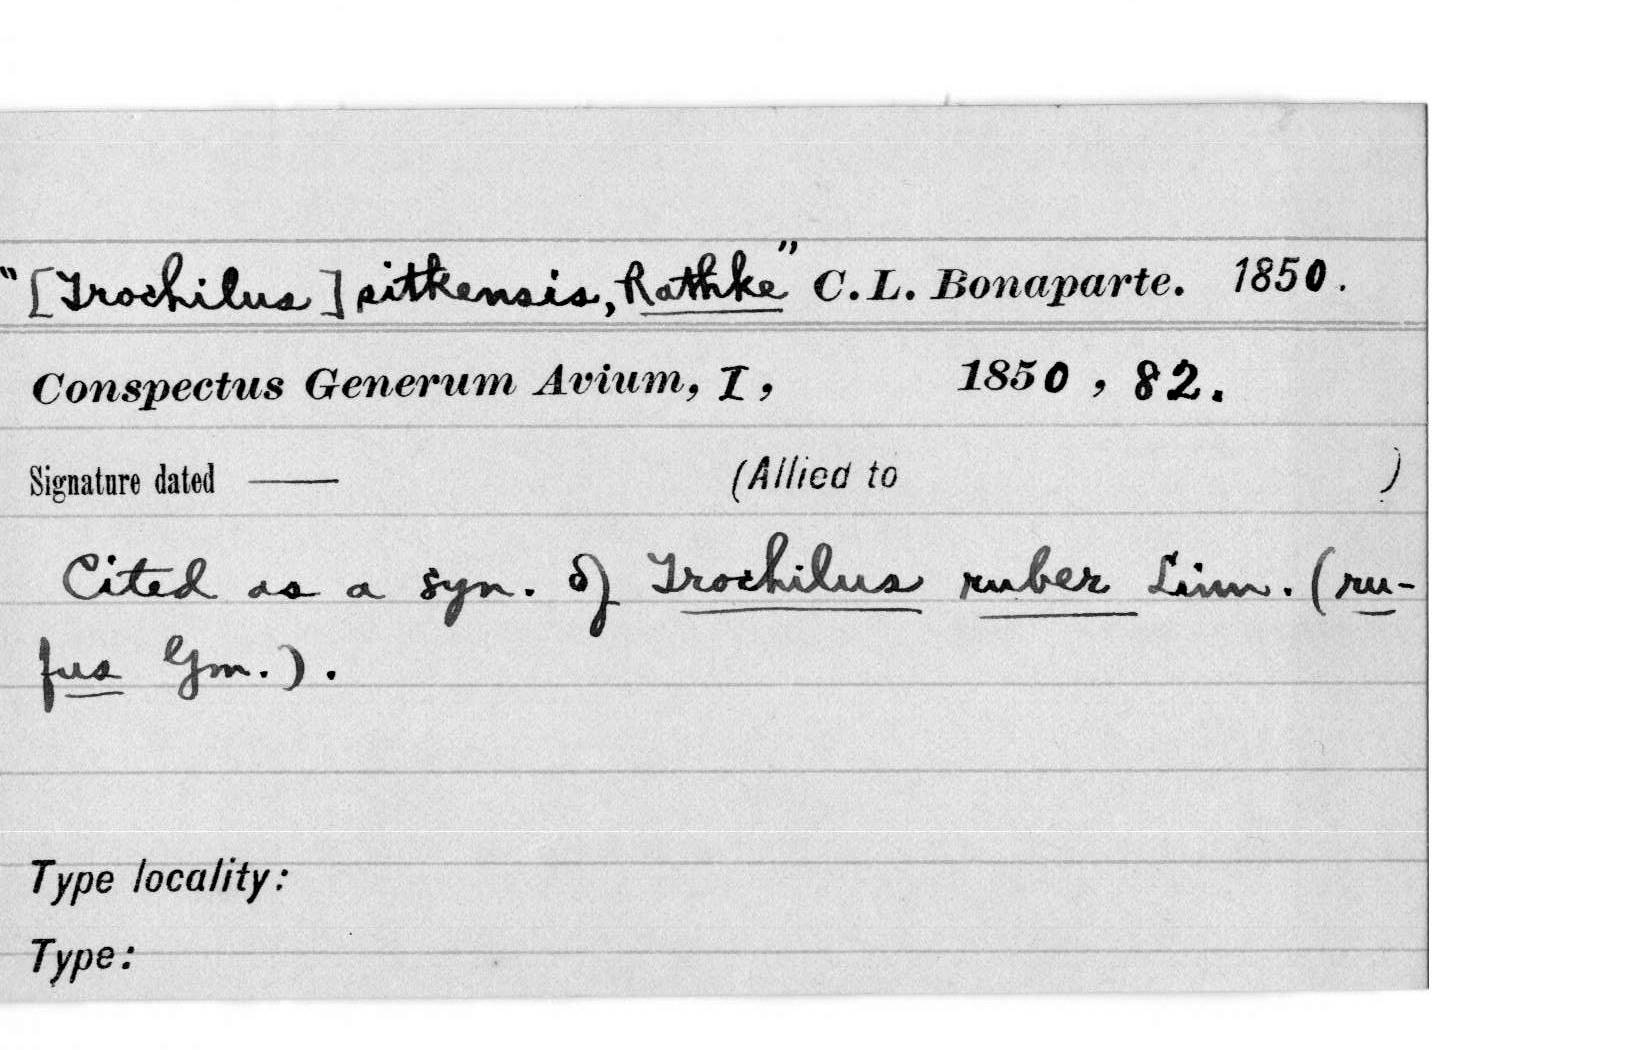 "[Trochilus] sitkensis, Rathke" C. L. Bonaparte. 1850.
Conspectus Generum Avium, I, 1850, 82.
Signature dated —— (Allied to )
Cited as a syn. of Trochilus ruber Linn. (ru-
fus Gm.).
Type locality:
Type: